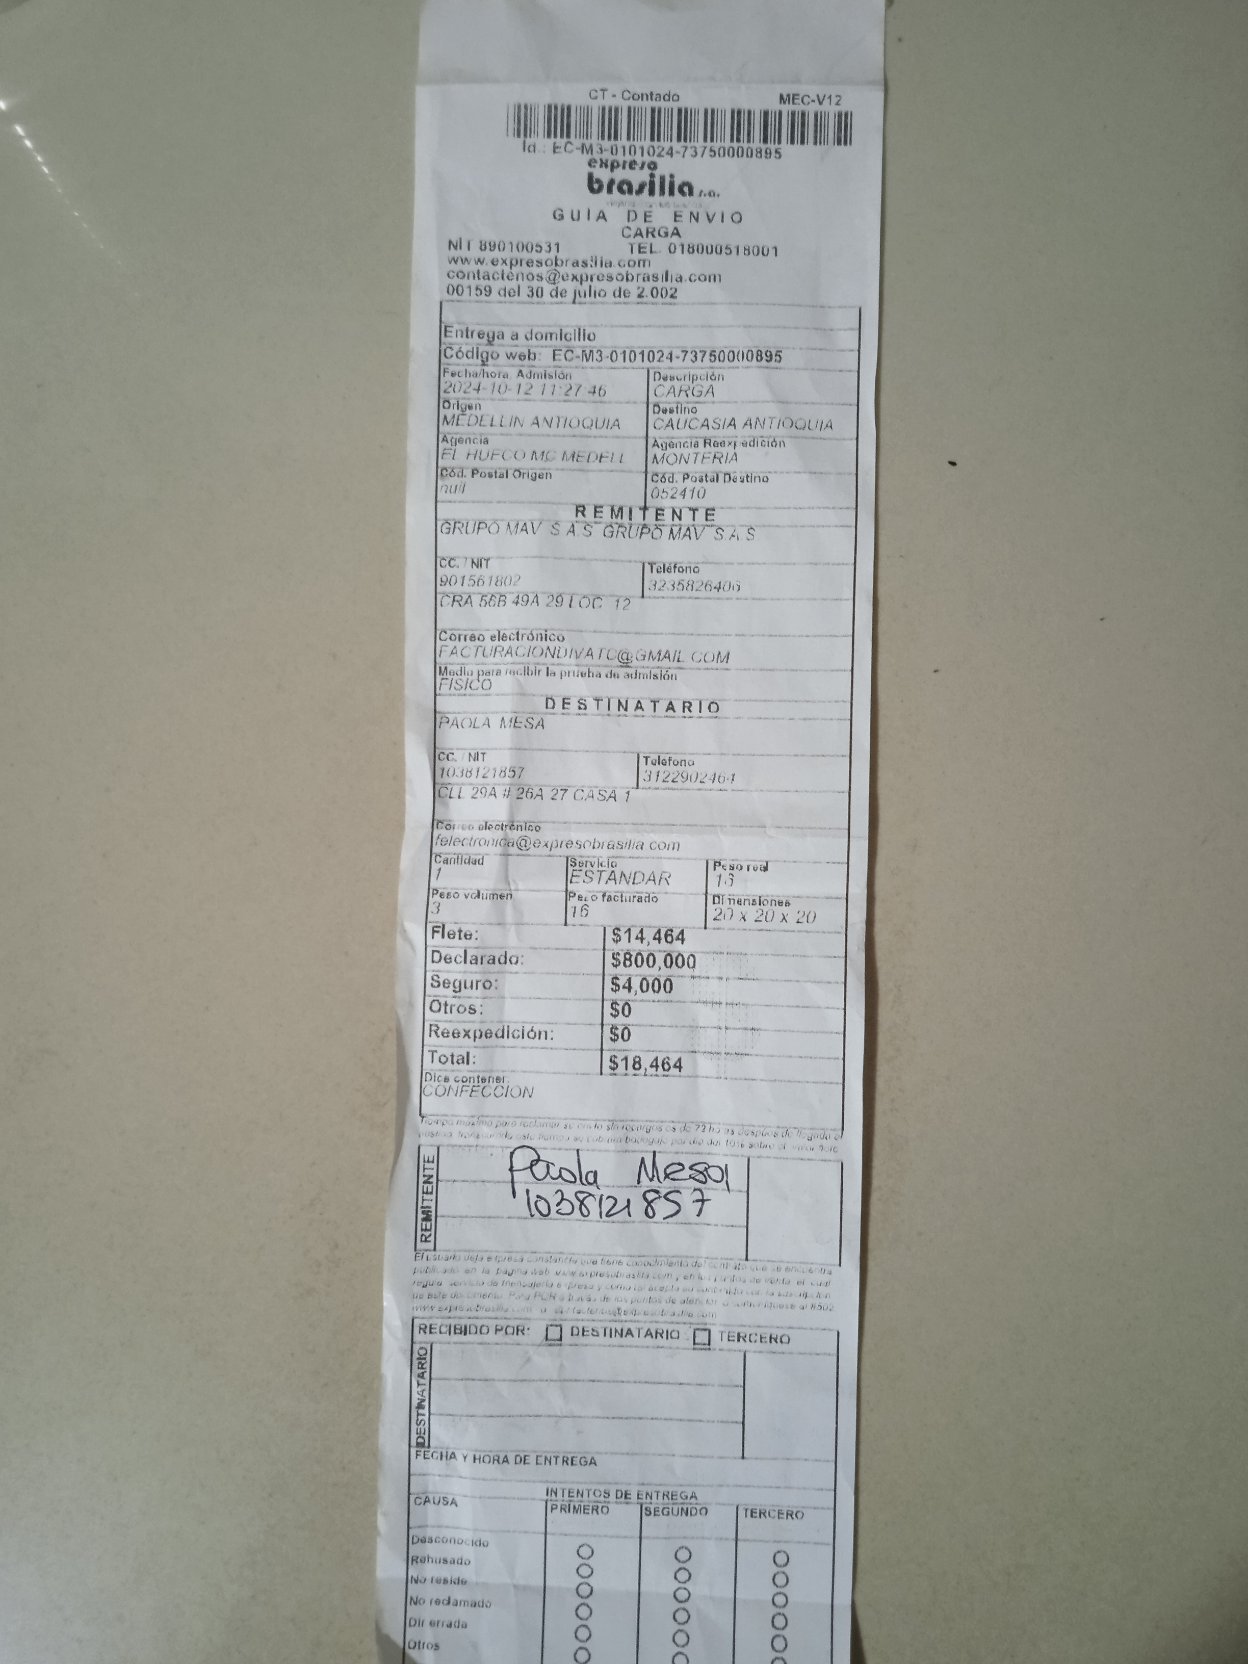 CT - Contado MEC-V12
Id.: EC-M3-0101024-73750000895
expreso
brasilia s.a.
GUIA DE ENVIO
CARGA
NIT 890100531 TEL. 018000518001
www.expresobrasilia.com
contactenos@expresobrasilia.com
00159 del 30 de julio de 2.002
Entrega a domicilio
Código web: EC-M3-0101024-73750000895
Fecha/hora Admisión Descripción
2024-10-12 11:27:46 CARGA
Origen Destino
MEDELLIN ANTIOQUIA CAUCASIA ANTIOQUIA
Agencia Agencia Reexpedición
EL HUECO MC MEDELL MONTERIA
Cód. Postal Origen Cód. Postal Destino
null 052410
REMITENTE
GRUPO MAV S A S GRUPO MAV S A S
CC. / NIT Teléfono
901561802 3235826406
CRA 56B 49A 29 LOC 12
Correo electrónico
FACTURACIONDIVATC@GMAIL.COM
Medio para recibir la prueba de admisión
FISICO
DESTINATARIO
PAOLA MESA
CC. / NIT Teléfono
1038121857 3122902464
CLL 29A # 26A 27 CASA 1
Correo electrónico
felectronica@expresobrasilia.com
Cantidad Servicio Peso real
1 ESTANDAR
Peso volumen Peso facturado Dimensiones
3 16 20 x 20 x 20
Flete: $14,464
Declarado: $800,000
Seguro: $4,000
Otros: $0
Reexpedición: $0
Total: $18,464
Dice contener:
CONFECCION
Tiempo máximo para reclamar su envío sin recargos es de 72 horas después de llegada a
REMITENTE
Paola Mesa
1038121857
El usuario deja expresa constancia que tiene conocimiento del contrato que se encuentra
publicado en la página web www.expresobrasilia.com y en los puntos de venta, el cual
de este documento. Para PQR a través de los puntos de atención
www.expresobrasilia.com
RECIBIDO POR: DESTINATARIO TERCERO
DESTINATARIO
FECHA Y HORA DE ENTREGA
INTENTOS DE ENTREGA
CAUSA PRIMERO SEGUNDO TERCERO
Desconocido
Rehusado
No reside
No reclamado
Dir errada
Otros